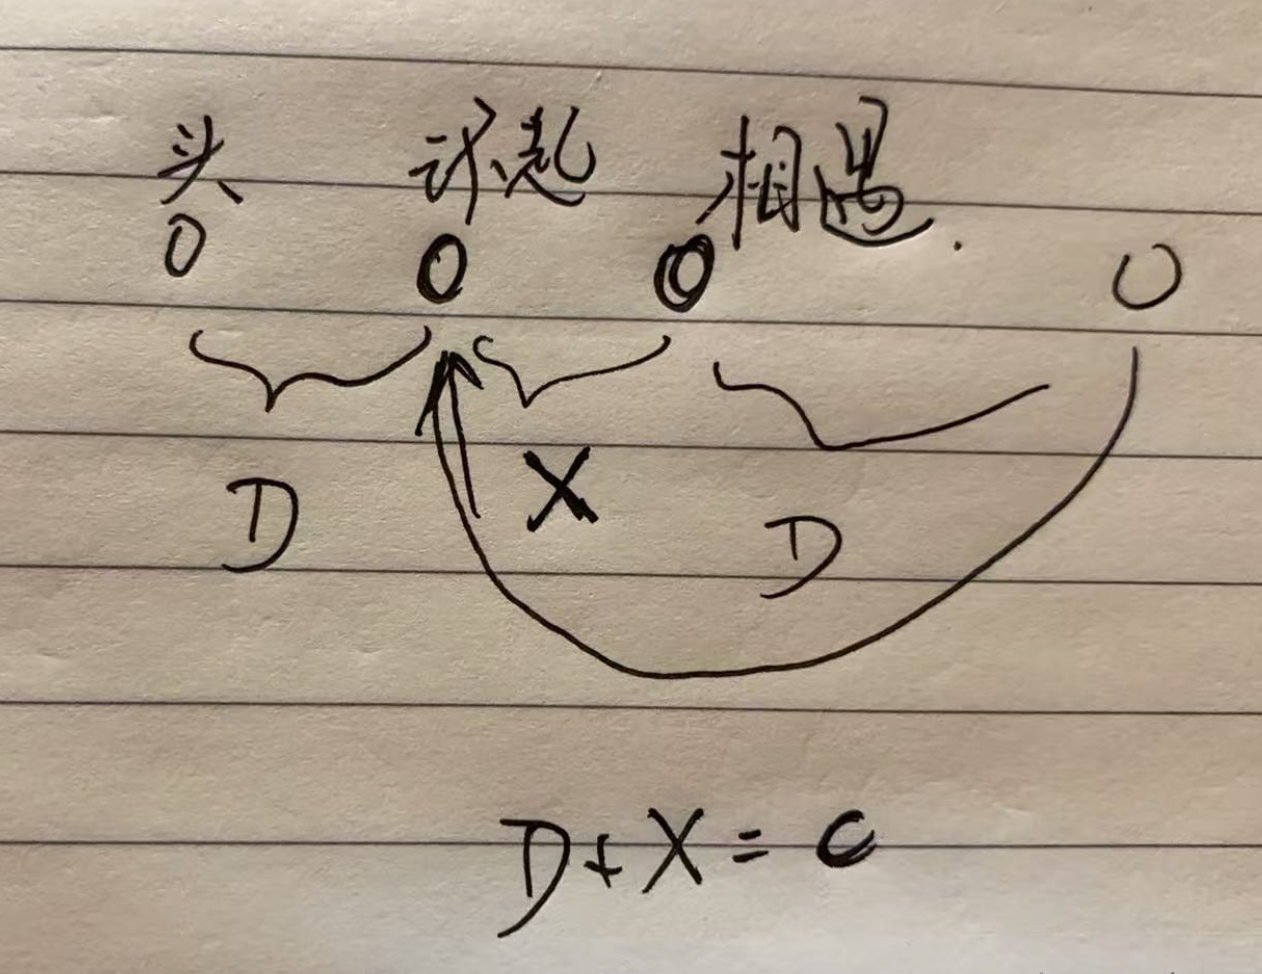 头 环起 相遇.
D X D
D+X=C